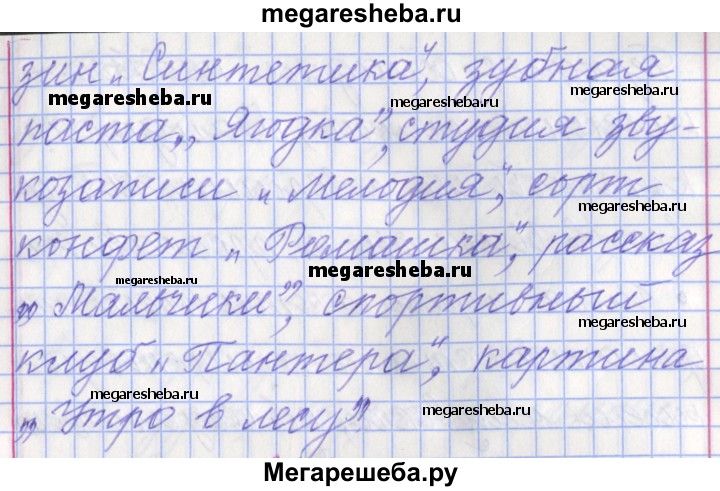 megaresheba.ru
зин „Синтетика“, зубная
megaresheba.ru
megaresheba.ru
megaresheba.ru
паста „Ягодка“, студия зву-
козаписи „Мелодия“, сорт
megaresheba.ru
megaresheba.ru
конфет „Ромашка“, рассказ
megaresheba.ru
megaresheba.ru
„Мальчики”, спортивный
megaresheba.ru
клуб „Пантера“, картина
megaresheba.ru
megaresheba.ru
„Утро в лесу”
megaresheba.ru
Мегарешеба.ру